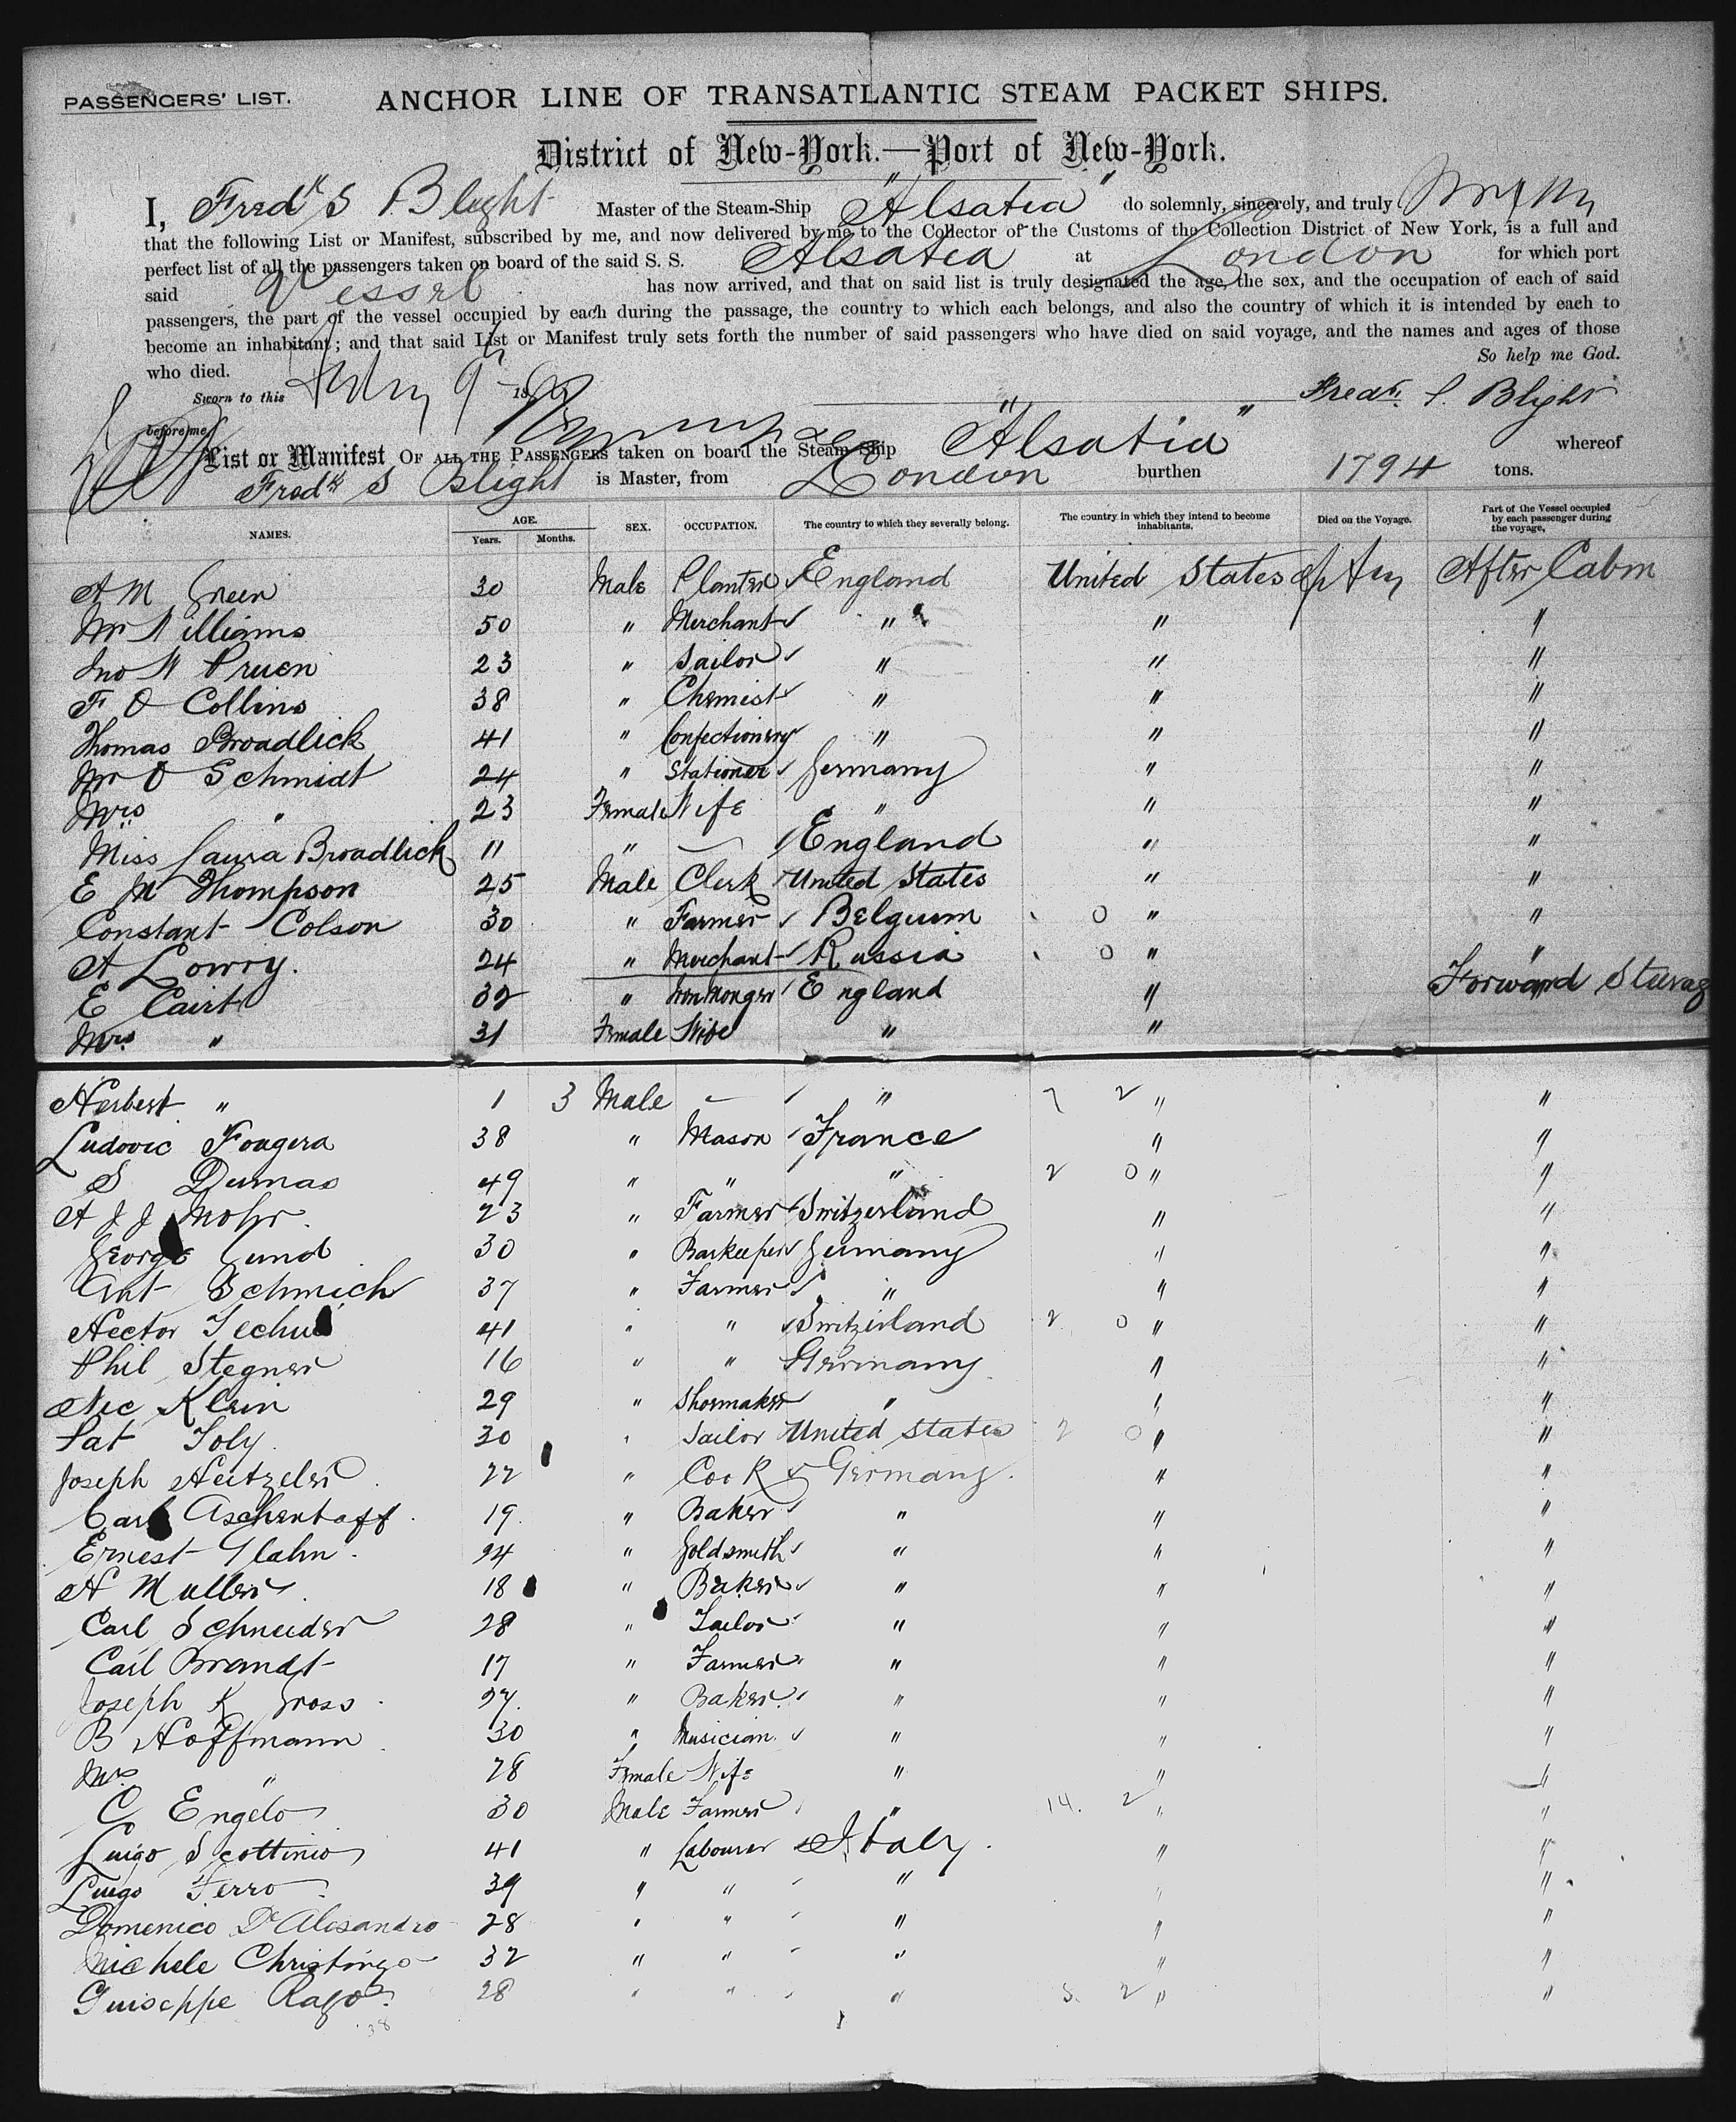 PASSENGERS' LIST.
ANCHOR LINE OF TRANSATLANTIC STEAM PACKET SHIPS.
District of New-York.—Port of New-York.
I, Fredk S Blight Master of the Steam-Ship "Alsatia" do solemnly, sincerely, and truly
that the following List or Manifest, subscribed by me, and now delivered by me to the Collector of the Customs of the Collection District of New York, is a full and
perfect list of all the passengers taken on board of the said S. S. Alsatia at London for which port
said Vessel has now arrived, and that on said list is truly designated the age, the sex, and the occupation of each of said
passengers, the part of the vessel occupied by each during the passage, the country to which each belongs, and also the country of which it is intended by each to
become an inhabitant; and that said List or Manifest truly sets forth the number of said passengers who have died on said voyage, and the names and ages of those
who died. So help me God.
Sworn to this 9th 18 Fredk. S. Blight
before me
List or Manifest OF ALL THE PASSENGERS taken on board the Steam Ship "Alsatia" whereof
Fredk S Blight is Master, from London burthen 1794 tons.
NAMES. AGE. Years. Months. SEX. OCCUPATION. The country to which they severally belong. The country in which they intend to become inhabitants. Died on the Voyage. Part of the Vessel occupied by each passenger during the voyage.
A M Green 30 Male Planter England United States After Cabin
Mr Williams 50 " Merchant " " "
Jno W Pruen 23 " Sailor " " "
F O Collins 38 " Chemist " " "
Thomas Broadlick 41 " Confectionery " " "
Mr O Schmidt 24 " Stationer Germany " "
Mrs " 23 Female Wife " " "
Miss Laura Broadlick 11 " — England " "
E M Thompson 25 Male Clerk United States " "
Constant Colson 30 " Farmer Belgium 0 " "
A Lowry. 24 " Merchant Russia 0 " "
E Cairt 32 " Ironmonger England " Forward Steerag
Mrs " 31 Female Wife " "
Herbert " 1 3 Male — " 7 2 " "
Ludovic Fougera 38 " Mason France " "
S Dumas 49 " " " 2 0 " "
A J J Mohr. 23 " Farmer Switzerland " "
George Gund 30 " Barkeeper Germany " "
Ant Schmich 37 " Farmer " " "
Hector 41 " " Switzerland 2 0 " "
Phil Stegner 16 " " Germany " "
Nic Klein 29 " Shoemaker " " "
Pat Foly 30 " Sailor United States 2 0 " "
Joseph Heitzeler 22 " Cook Germany. " "
Carl Aschentoff 19. " Baker " " "
Ernest Glahn. 24 " Goldsmith " " "
H Muller 18 " Baker " " "
Carl Schneider 28 " Tailor " " "
Carl Brandt 17 " Farmer " " "
Joseph K Gross. 27. " Baker " " "
B Hoffmann 30 " Musician. " " "
Mrs. " 28 Female Wife " " "
C Engelo 30 Male Farmer " 14. 2 " "
Luigo Scottinio 41 " Labourer Italy. " "
Luigo Ferro 39 " " " " "
Domenico De Alesandro 28 " " " " "
Michele Christingo 32 " " " " "
Guiseppe Rago. 28 " " " 5. 2 " "
38